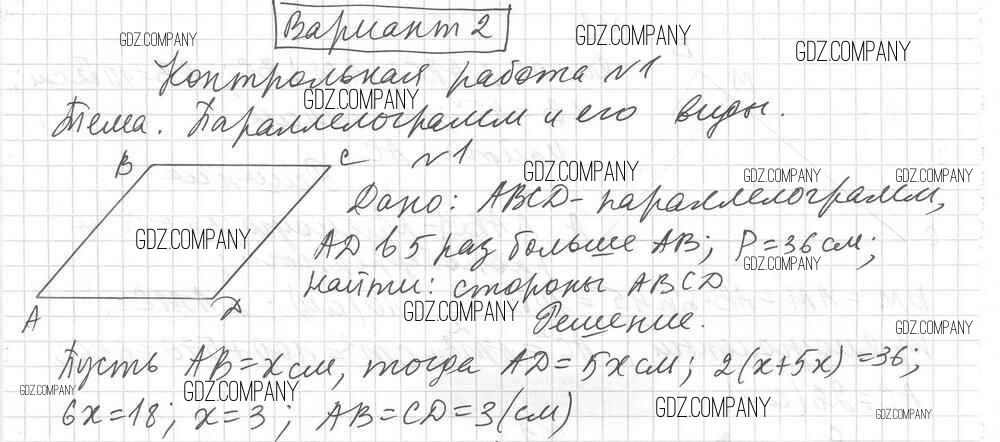 Вариант 2
GDZ.COMPANY GDZ.COMPANY GDZ.COMPANY
Контрольная работа №1
GDZ.COMPANY
Тема. Параллелограмм и его виды.
B C №1
GDZ.COMPANY GDZ.COMPANY GDZ.COMPANY
Дано: ABCD - параллелограмм,
GDZ.COMPANY
AD в 5 раз больше AB; P=36см;
GDZ.COMPANY
Найти: стороны ABCD
A D
GDZ.COMPANY
Решение.
GDZ.COMPANY
Пусть AB=x см, тогда AD=5x см; 2(x+5x)=36;
GDZ.COMPANY GDZ.COMPANY GDZ.COMPANY GDZ.COMPANY
6x=18; x=3; AB=CD=3(см)